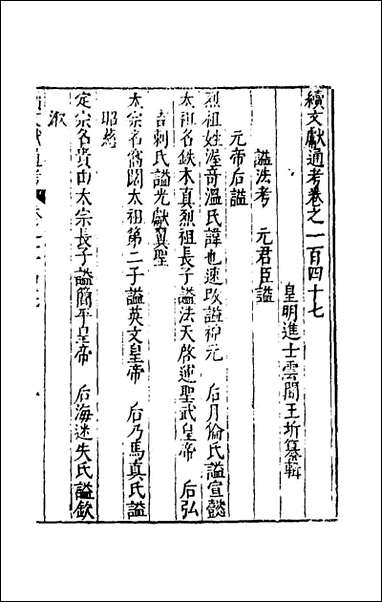 續文獻通考卷之一百四十七
皇明進士雲間王圻纂輯
諡法考 元君臣諡
元帝后諡
烈祖姓渥奇溫氏諱也速改諡神元 后月倫氏諡宣懿
太祖名鉄木真烈祖長子諡法天啓運聖武皇帝 后弘
吉剌氏諡光獻翼聖
太宗名窩闊太祖第二子諡英文皇帝 后乃馬真氏諡
昭慈
定宗名貴由太宗長子諡簡平皇帝 后海迷失氏諡欽
淑